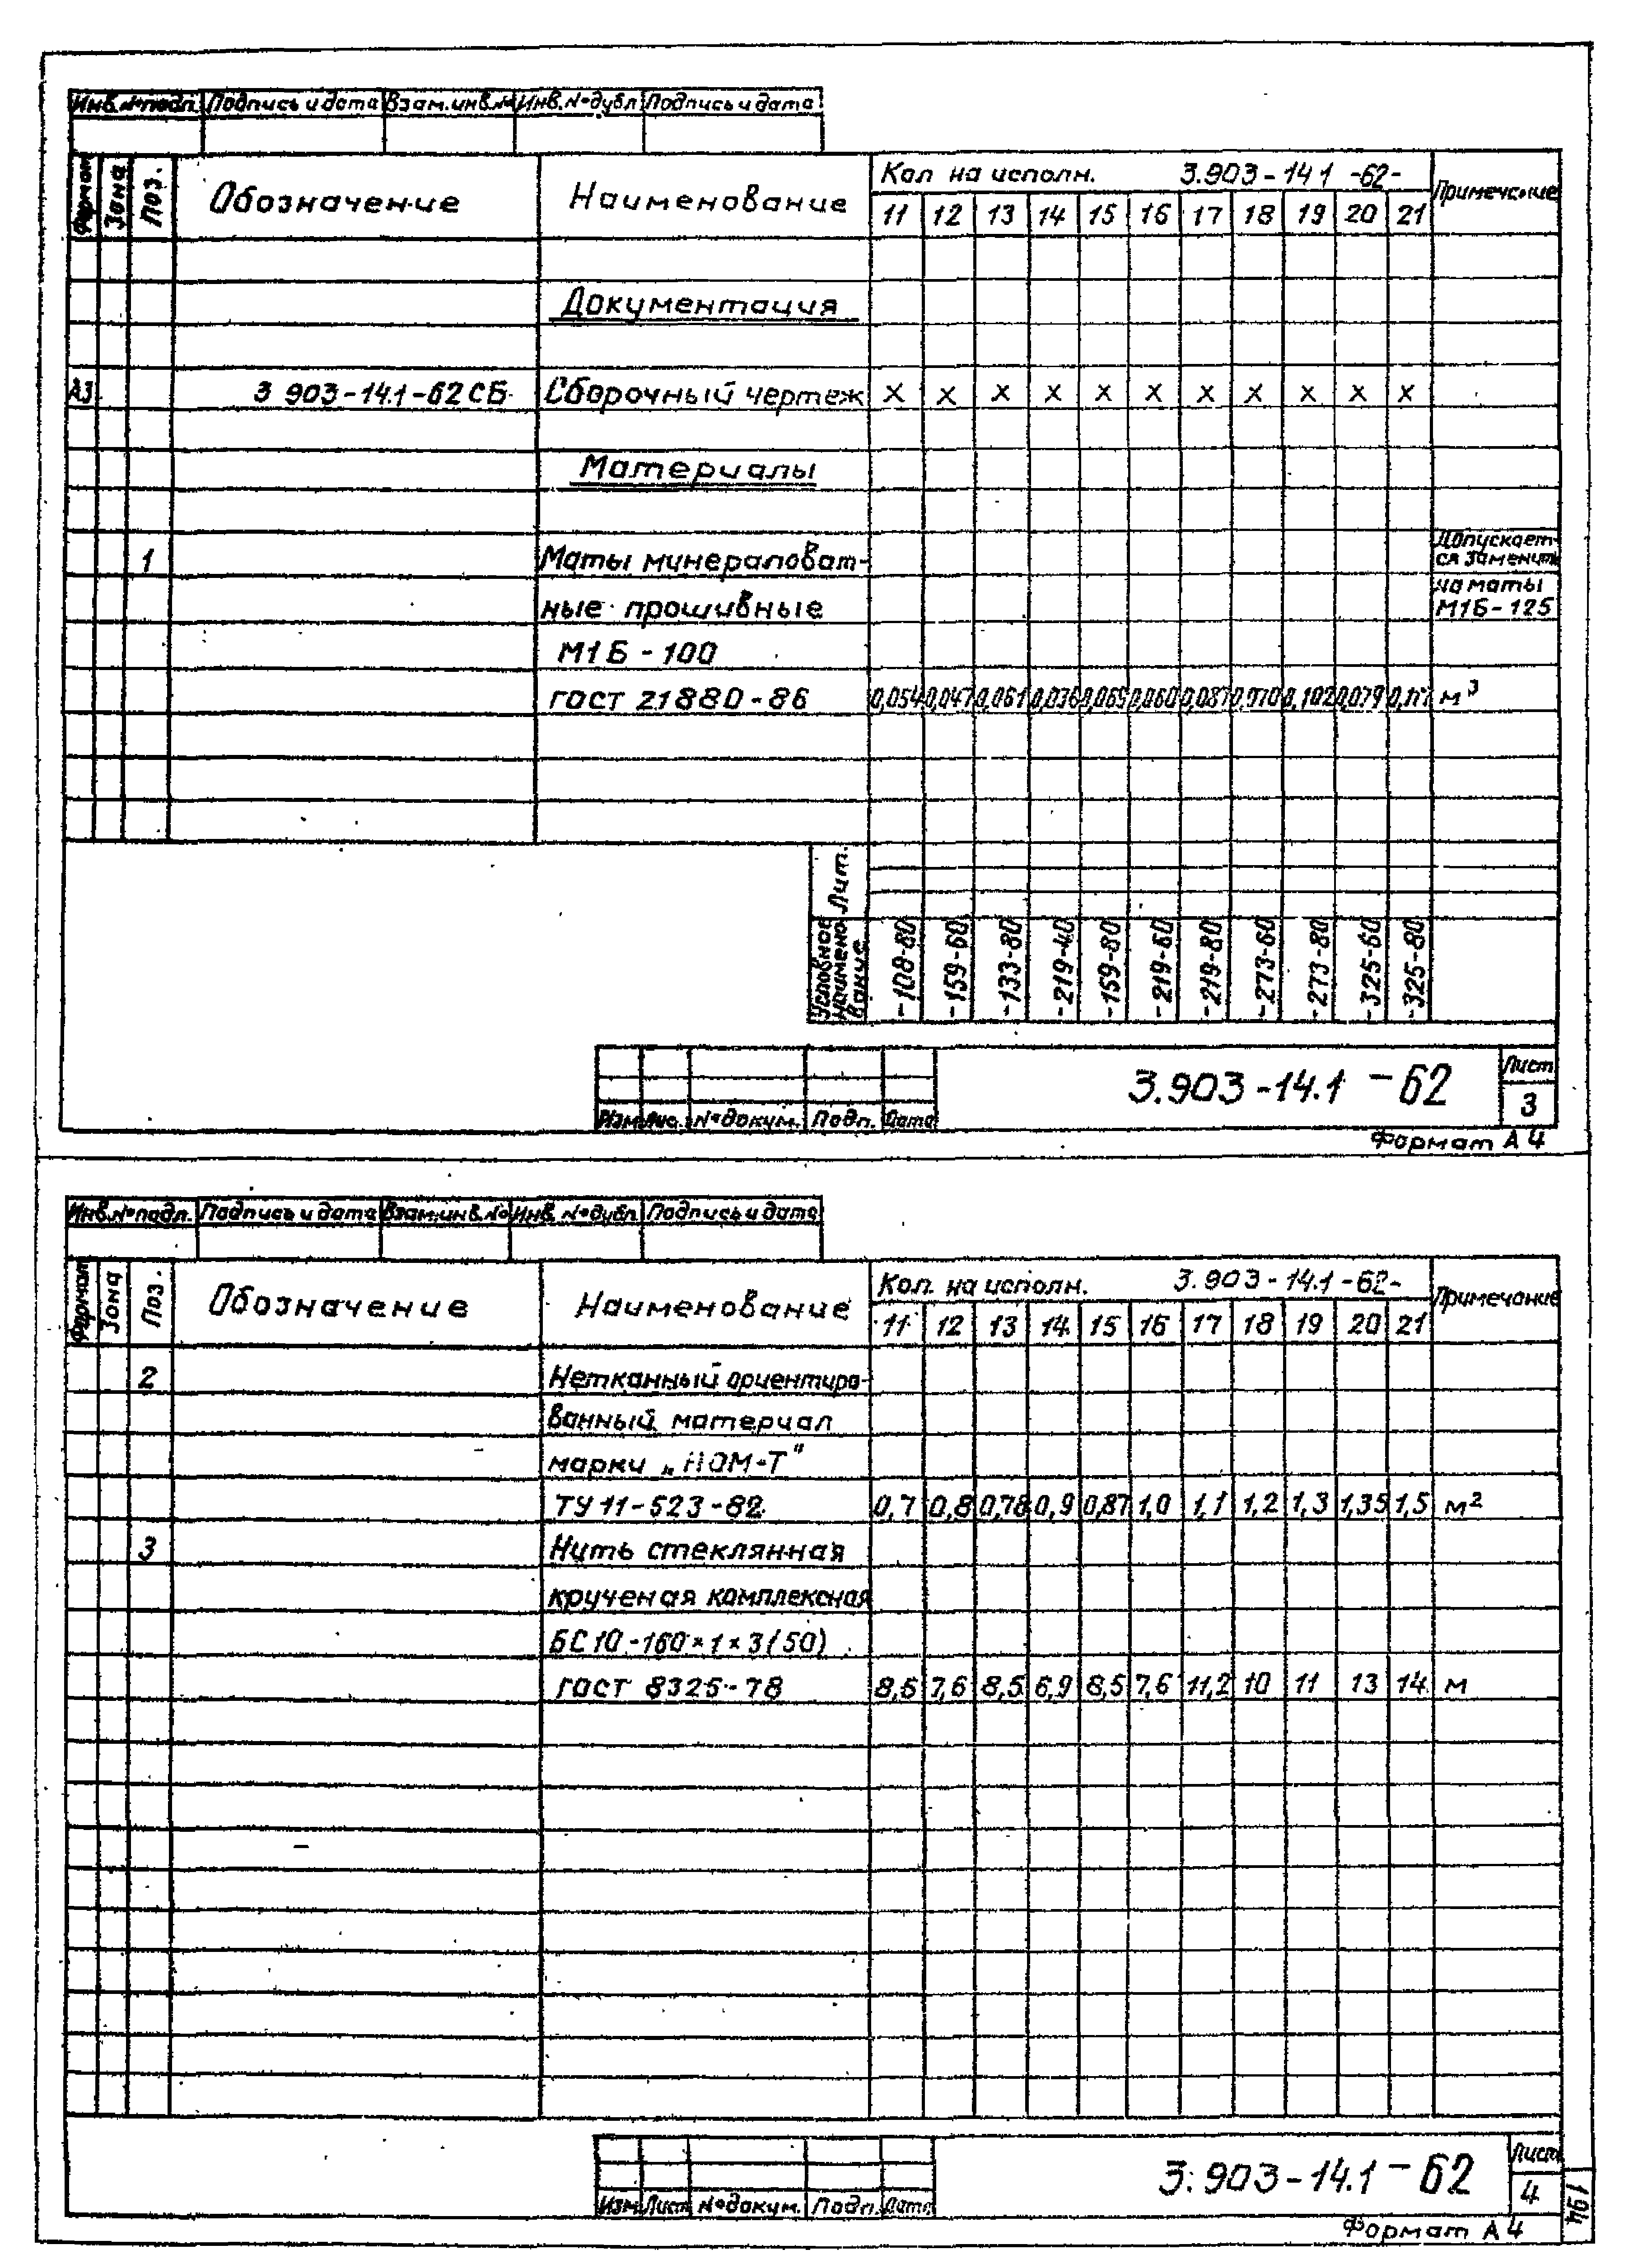 Инв.№подл. Подпись и дата Взам.инв.№ Инв.№дубл. Подпись и дата
Формат Зона Поз. Обозначение Наименование Кол на исполн. 3.903-14 1 -62- Примечание
11 12 13 14 15 16 17 18 19 20 21
Документация
А3 3 903-14.1-62СБ Сборочный чертеж х х х х х х х х х х х
Материалы
1 Маты минераловат- Допускает-ся заменить
ные прошивные на маты М1Б-125
М1Б-100
ГОСТ 21880-86 0,054 0,047 0,061 0,036 0,065 0,060 0,087 0,070 0,102 0,079 0,117 м³
Лит.
Условное наименование -108-80 -159-60 -133-80 -219-40 -159-80 -219-60 -219-80 -273-60 -273-80 -325-60 -325-80
3.903-14.1-62 Лист
3
Изм. Лис. №докум. Подп. Дата
Формат А4
Инв.№подл. Подпись и дата Взам.инв.№ Инв.№дубл. Подпись и дата
Формат Зона Поз. Обозначение Наименование Кол. на исполн. 3.903-14.1-62- Примечание
11 12 13 14 15 16 17 18 19 20 21
2 Нетканный ориентиро-
ванный материал
марки „НОМ-Т"
ТУ 11-523-82 0,7 0,8 0,78 0,9 0,87 1,0 1,1 1,2 1,3 1,35 1,5 м²
3 Нить стеклянная
крученая комплексная
БС10-160×1×3(50)
ГОСТ 8325-78 8,5 7,6 8,5 6,9 8,5 7,6 11,2 10 11 13 14 м
3.903-14.1-62 Лист
4
Изм. Лист №докум. Подп. Дата
Формат А4
194